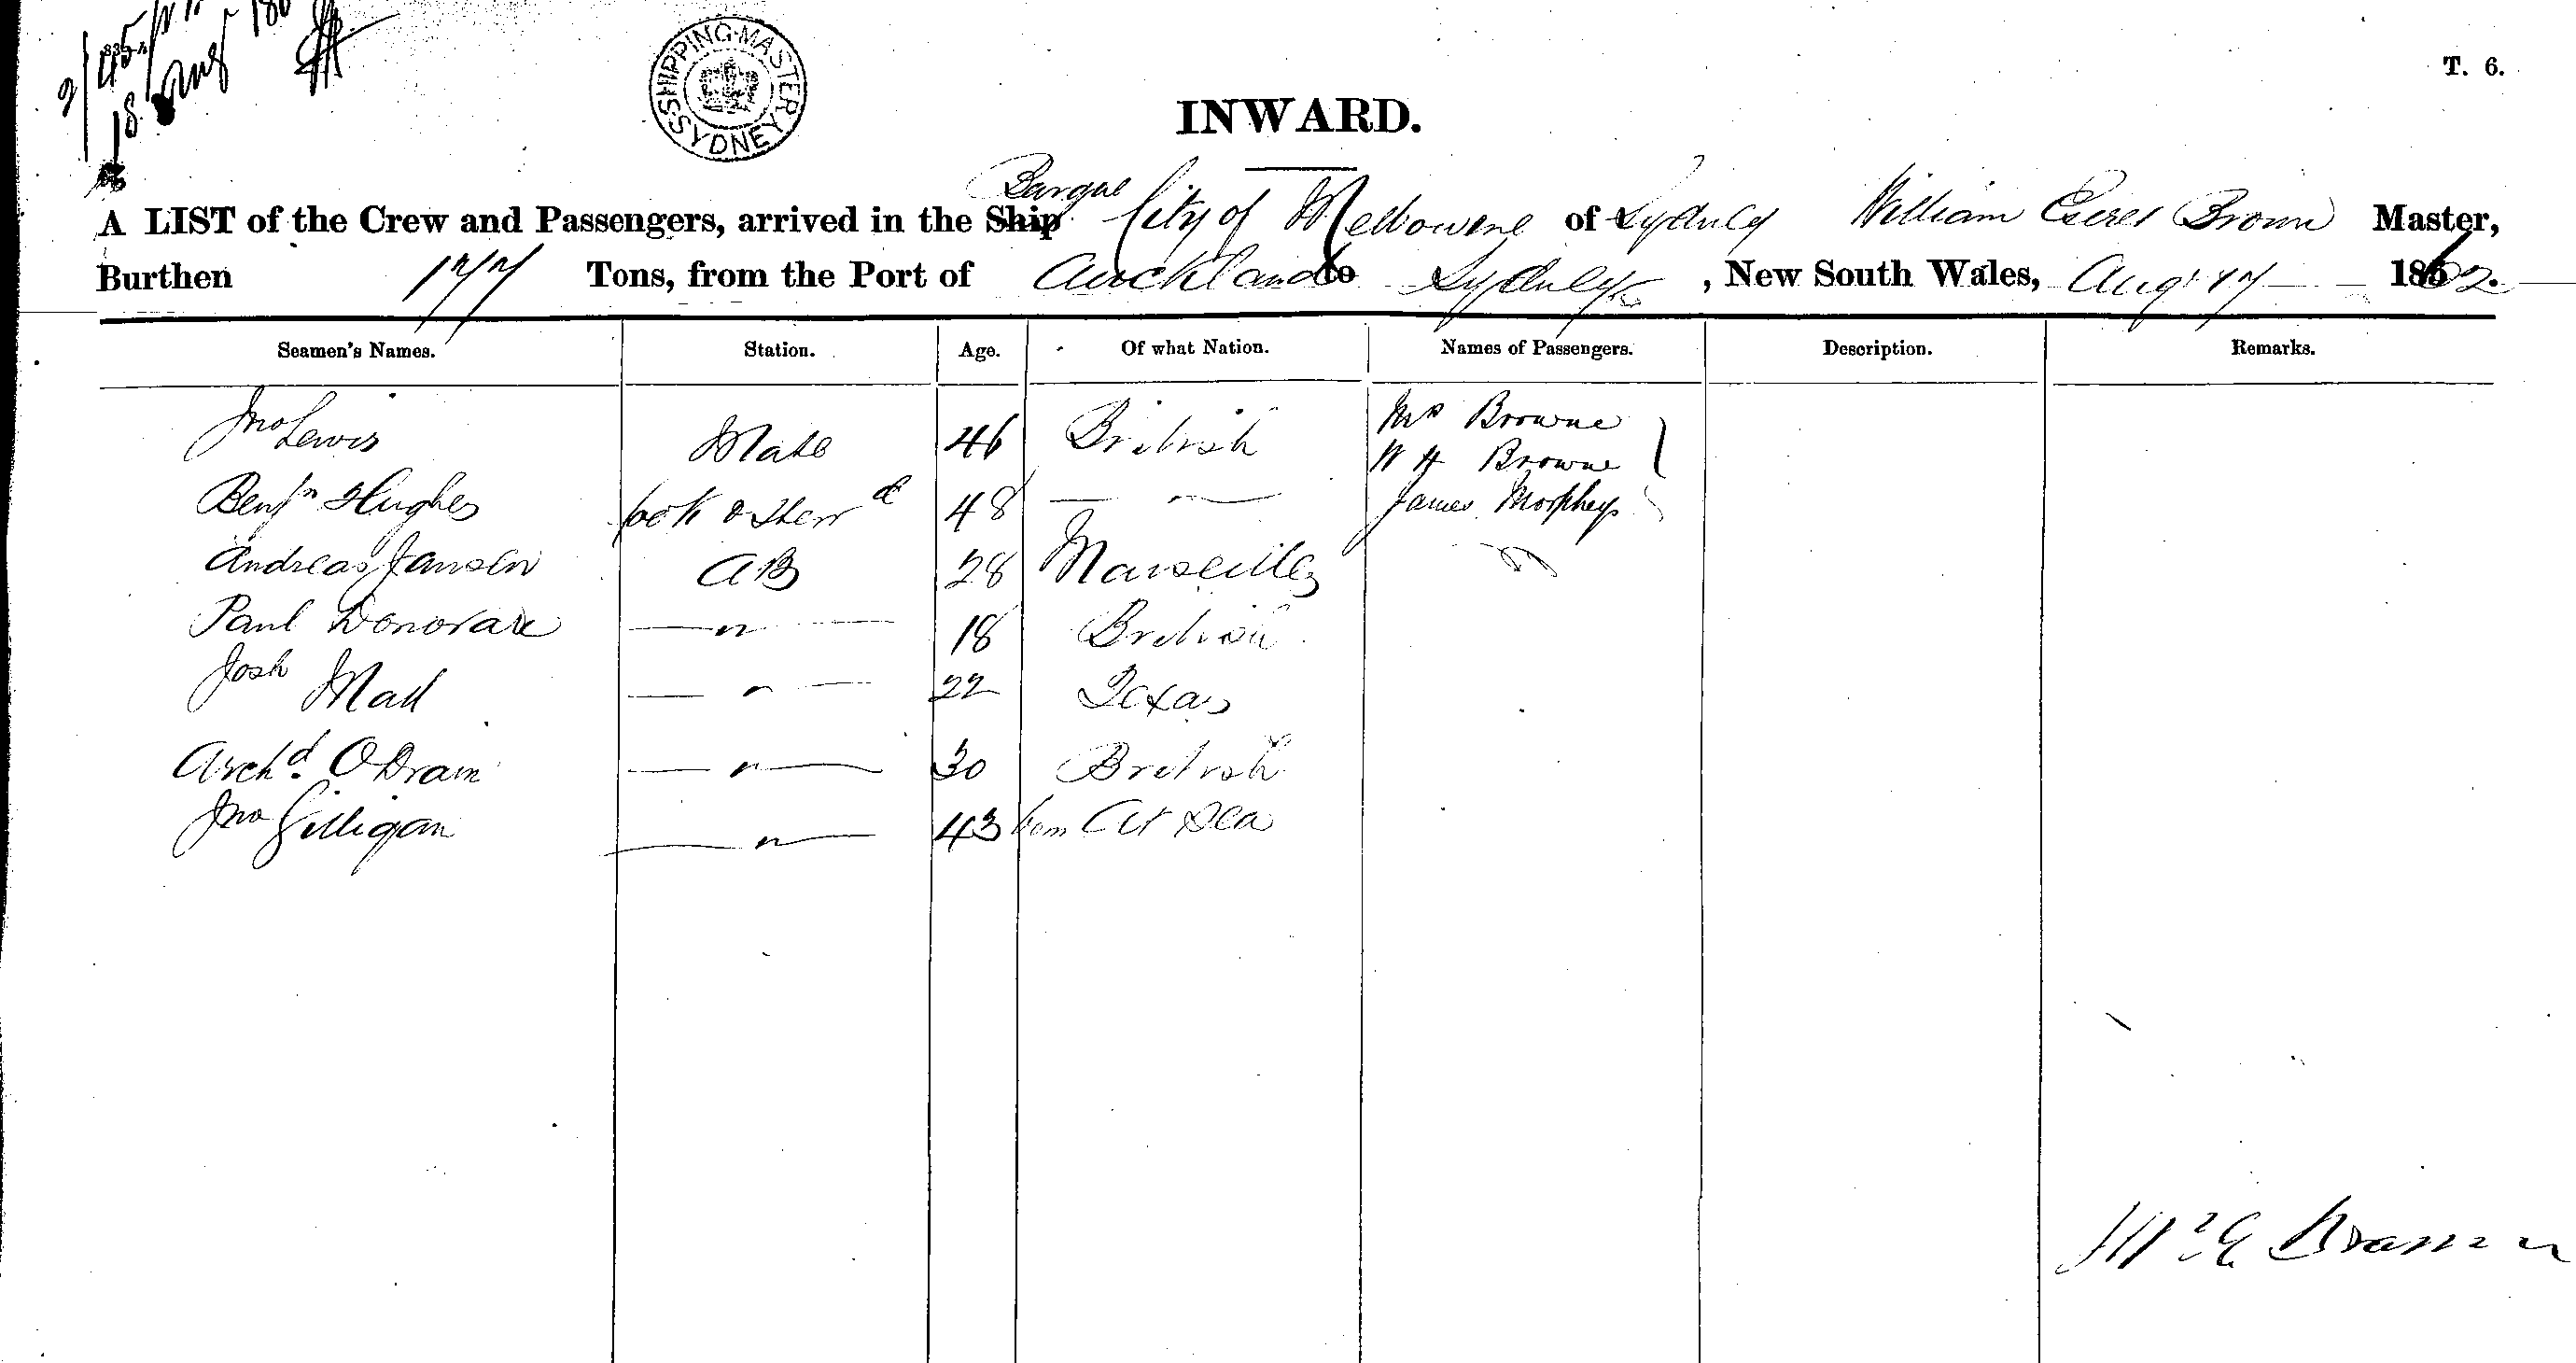 SHIPPING MASTER SYDNEY
T. 6.
INWARD.
Barque
A LIST of the Crew and Passengers, arrived in the Ship City of Melbourne of Sydney William Brown Master,
Burthen 177 Tons, from the Port of Auckland to Sydney, New South Wales, Aug 17 1862.
Seamen's Names. Station. Age. Of what Nation. Names of Passengers. Description. Remarks.
Jno Lewis Mate 46 British Mrs Browne
W H Browne
Benjn Hughes Cook & Stewd 48 — " — James Morphey
Andreas Jansen AB 28 Marseilles
Paul Donovan — " — 18 British
Josh Mall — " — 22 Texas
Archd. O Drain — " — 30 British
Jno Gilligan — " — 43 born At Sea